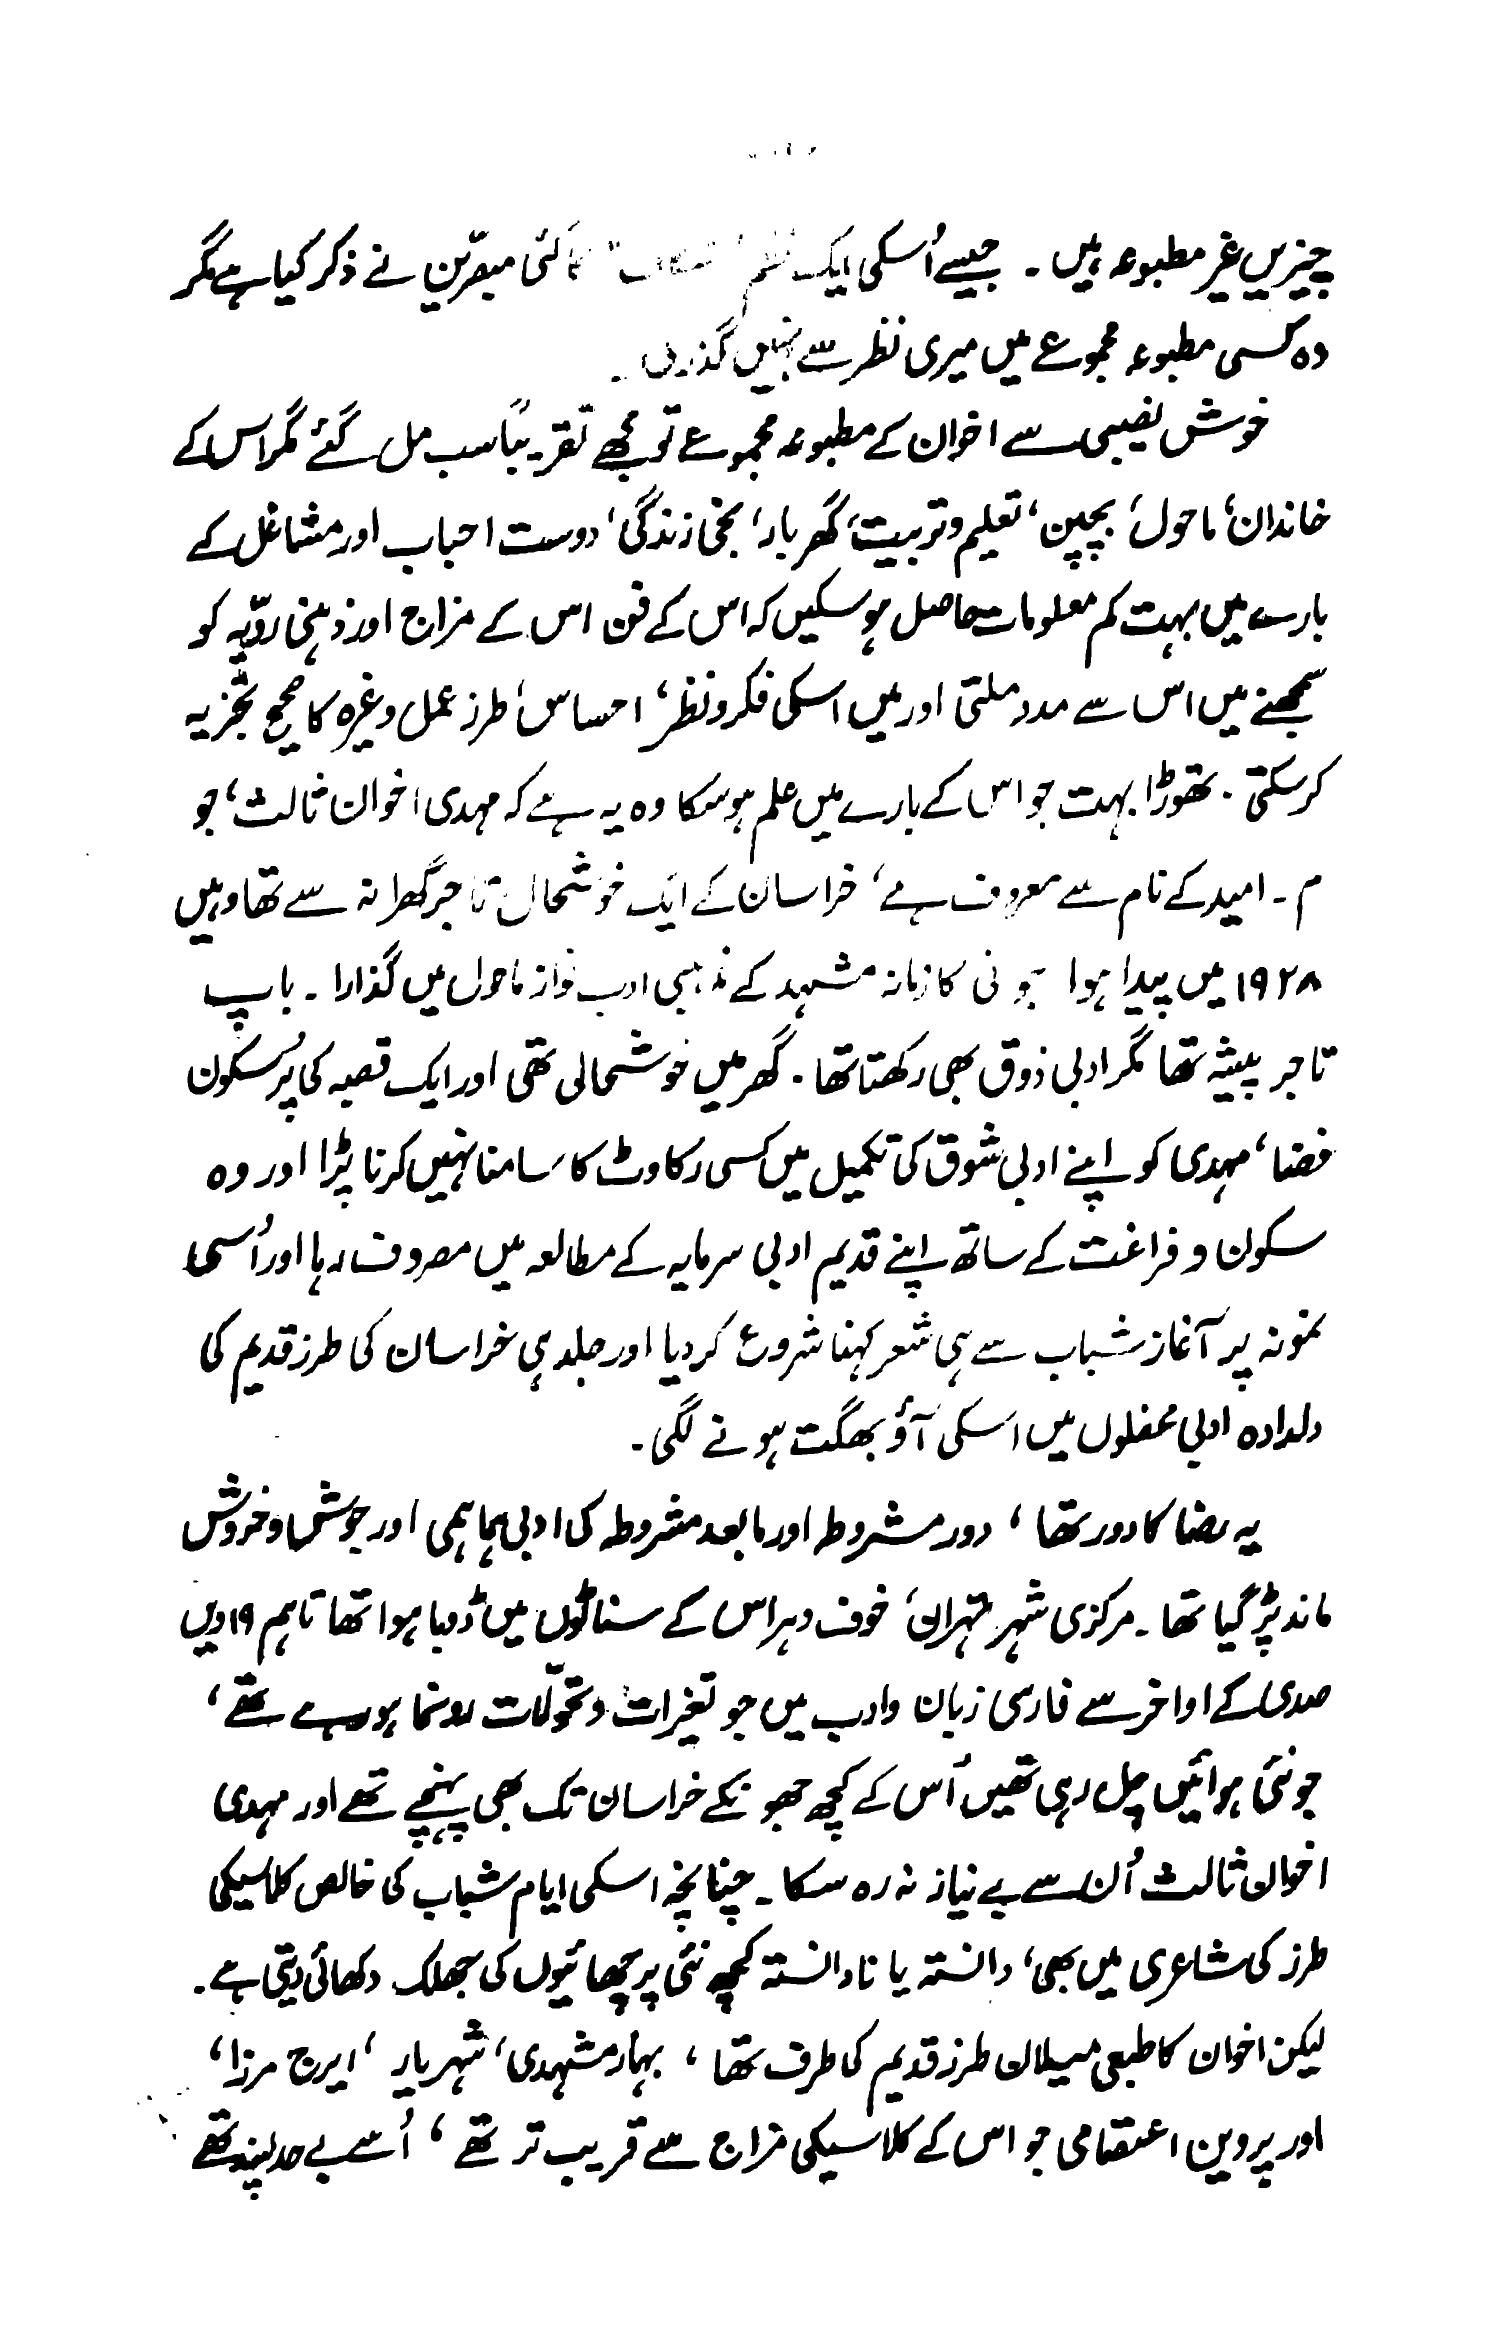 چیزیں غیر مطبوعہ ہیں ۔ جیسے اُسکی ایک نظم کا کئی مبصّرین نے ذکر کیا ہے مگر
وہ کسی مطبوعہ مجموعے میں میری نظر سے نہیں گذری ۔
خوش نصیبی سے اخوان کے مطبوعہ مجموعے تو مجھے تقریباً سب مل گئے مگر اس کے
خاندان، ماحول، بچپن، تعلیم و تربیت، گھر بار، نجی زندگی، دوست احباب اور مشاغل کے
بارے میں بہت کم معلومات حاصل ہو سکیں کہ اس کے فن اس کے مزاج اور ذہنی رویّہ کو
سمجھنے میں اس سے مدد ملتی اور میں اسکی فکر و نظر، احساس، طرز عمل وغیرہ کا صحیح تجزیہ
کر سکتی ۔ تھوڑا بہت جو اس کے بارے میں علم ہو سکا وہ یہ ہے کہ مہدی اخوان ثالث، جو
م ۔ امید کے نام سے معروف ہے، خراسان کے ایک خوشحال تاجر گھرانہ سے تھا وہیں
۱۹۲۸ میں پیدا ہوا جوانی کا زمانہ مشہد کے مذہبی ادب نواز ماحول میں گذارا ۔ باپ
تاجر پیشہ تھا مگر ادبی ذوق بھی رکھتا تھا ۔ گھر میں خوشحالی تھی اور ایک قصبہ کی پُرسکون
فضا، مہدی کو اپنے ادبی شوق کی تکمیل میں کسی رکاوٹ کا سامنا نہیں کرنا پڑا اور وہ
سکون و فراغت کے ساتھ اپنے قدیم ادبی سرمایہ کے مطالعہ میں مصروف رہا اور اُسی
نمونہ پر آغاز شباب سے ہی شعر کہنا شروع کر دیا اور جلد ہی خراسان کی طرز قدیم کی
دلدادہ ادبی محفلوں میں اسکی آؤ بھگت ہونے لگی ۔
یہ رضا کا دور تھا، دور مشروطہ اور ما بعد مشروطہ کی ادبی ہماہمی اور جوش و خروش
ماند پڑ گیا تھا ۔ مرکزی شہر تہران، خوف و ہراس کے سناٹوں میں ڈوبا ہوا تھا تاہم ۱۹ ویں
صدی کے اواخر سے فارسی زبان و ادب میں جو تغیرات و تحوّلات رونما ہو رہے تھے،
جو نئی ہوائیں چل رہی تھیں اُس کے کچھ جھونکے خراسان تک بھی پہنچے تھے اور مہدی
اخوان ثالث اُن سے بے نیاز نہ رہ سکا ۔ چنانچہ اسکی ایام شباب کی خالص کلاسیکی
طرز کی شاعری میں بھی، دانستہ یا نادانستہ کچھ نئی پرچھائیوں کی جھلک دکھائی دیتی ہے ۔
لیکن اخوان کا طبعی میلان طرز قدیم کی طرف تھا، بہار مشہدی، شہریار، ایرج مرزا،
اور پروین اعتصامی جو اس کے کلاسیکی مزاج سے قریب تر تھے، اُسے بے حد پسند تھے